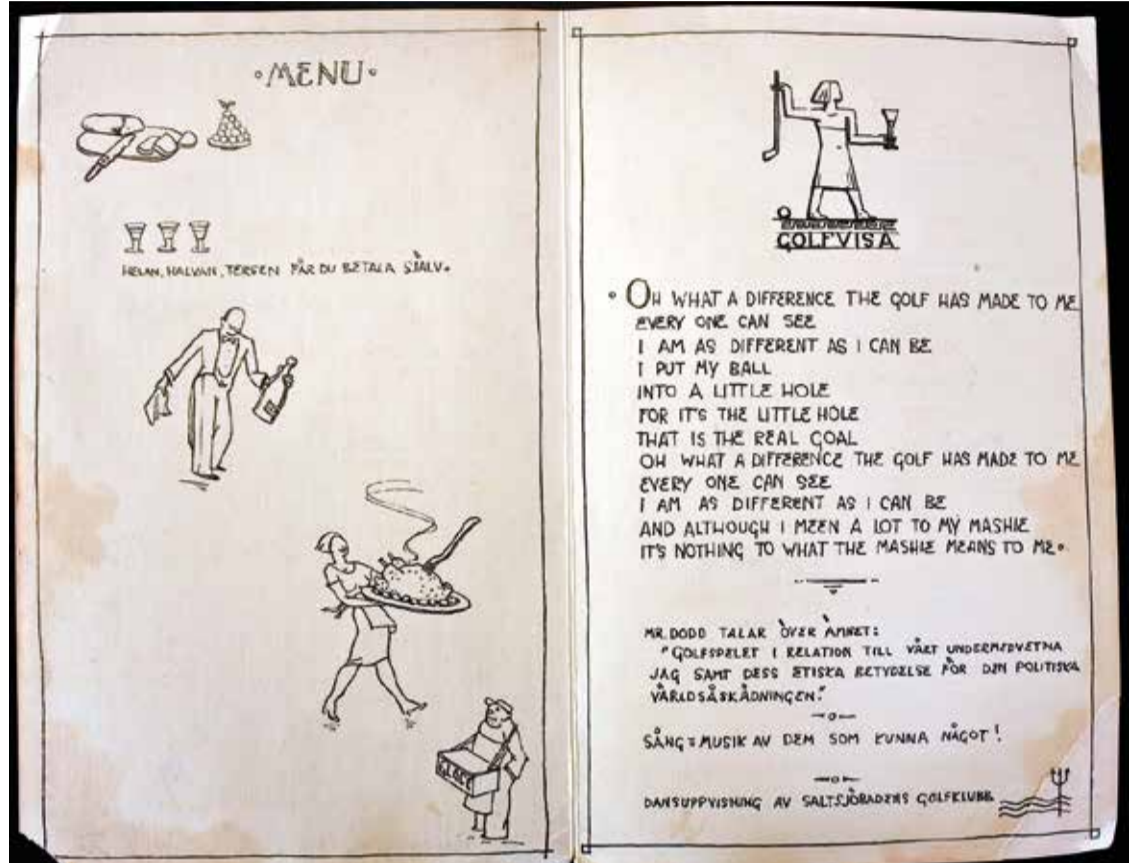 ·MENU·
HELAN, HALVAN, TERSEN FÅR DU BETALA SJÄLV.
GLACE
GOLFVISA
OH WHAT A DIFFERENCE THE GOLF HAS MADE TO ME
EVERY ONE CAN SEE
I AM AS DIFFERENT AS I CAN BE
I PUT MY BALL
INTO A LITTLE HOLE
FOR IT'S THE LITTLE HOLE
THAT IS THE REAL GOAL
OH WHAT A DIFFERENCE THE GOLF HAS MADE TO ME
EVERY ONE CAN SEE
I AM AS DIFFERENT AS I CAN BE
AND ALTHOUGH I MEEN A LOT TO MY MASHIE
IT'S NOTHING TO WHAT THE MASHIE MEANS TO ME.
MR. DODD TALAR ÖVER ÄMNET:
"GOLFSPELET I RELATION TILL VÅRT UNDERMEDVETNA
JAG SAMT DESS ETISKA BETYDELSE FÖR DEN POLITISKA
VÄRLDSÅSKÅDNINGEN."
SÅNG = MUSIK AV DEM SOM KUNNA NÅGOT!
DANSUPPVISNING AV SALTSJÖBADENS GOLFKLUBB